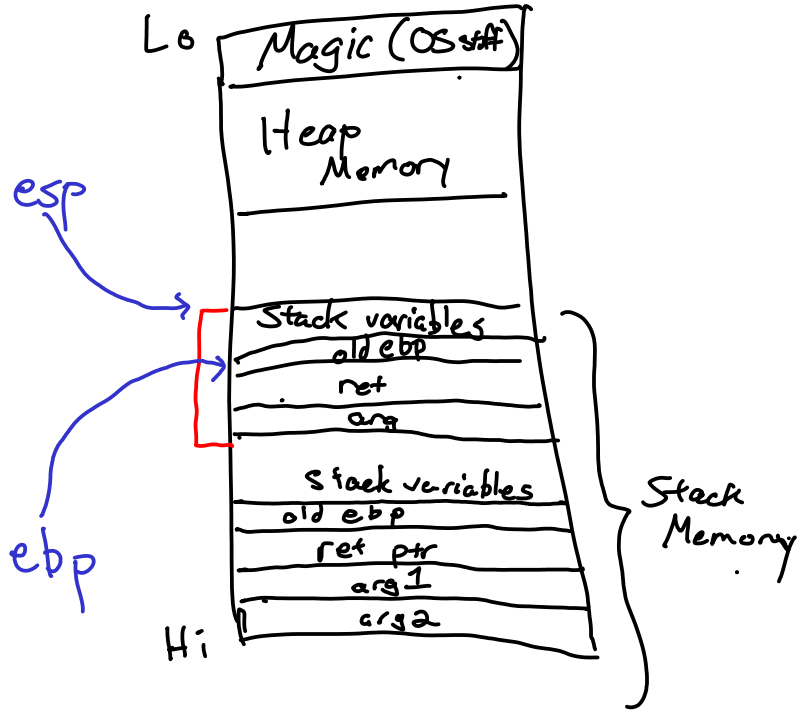 Lo
Magic (OS stuff)
Heap
Memory
esp
Stack variables
old ebp
ret
arg
Stack variables
old ebp
ret ptr
arg1
arg2
ebp
Hi
Stack
Memory